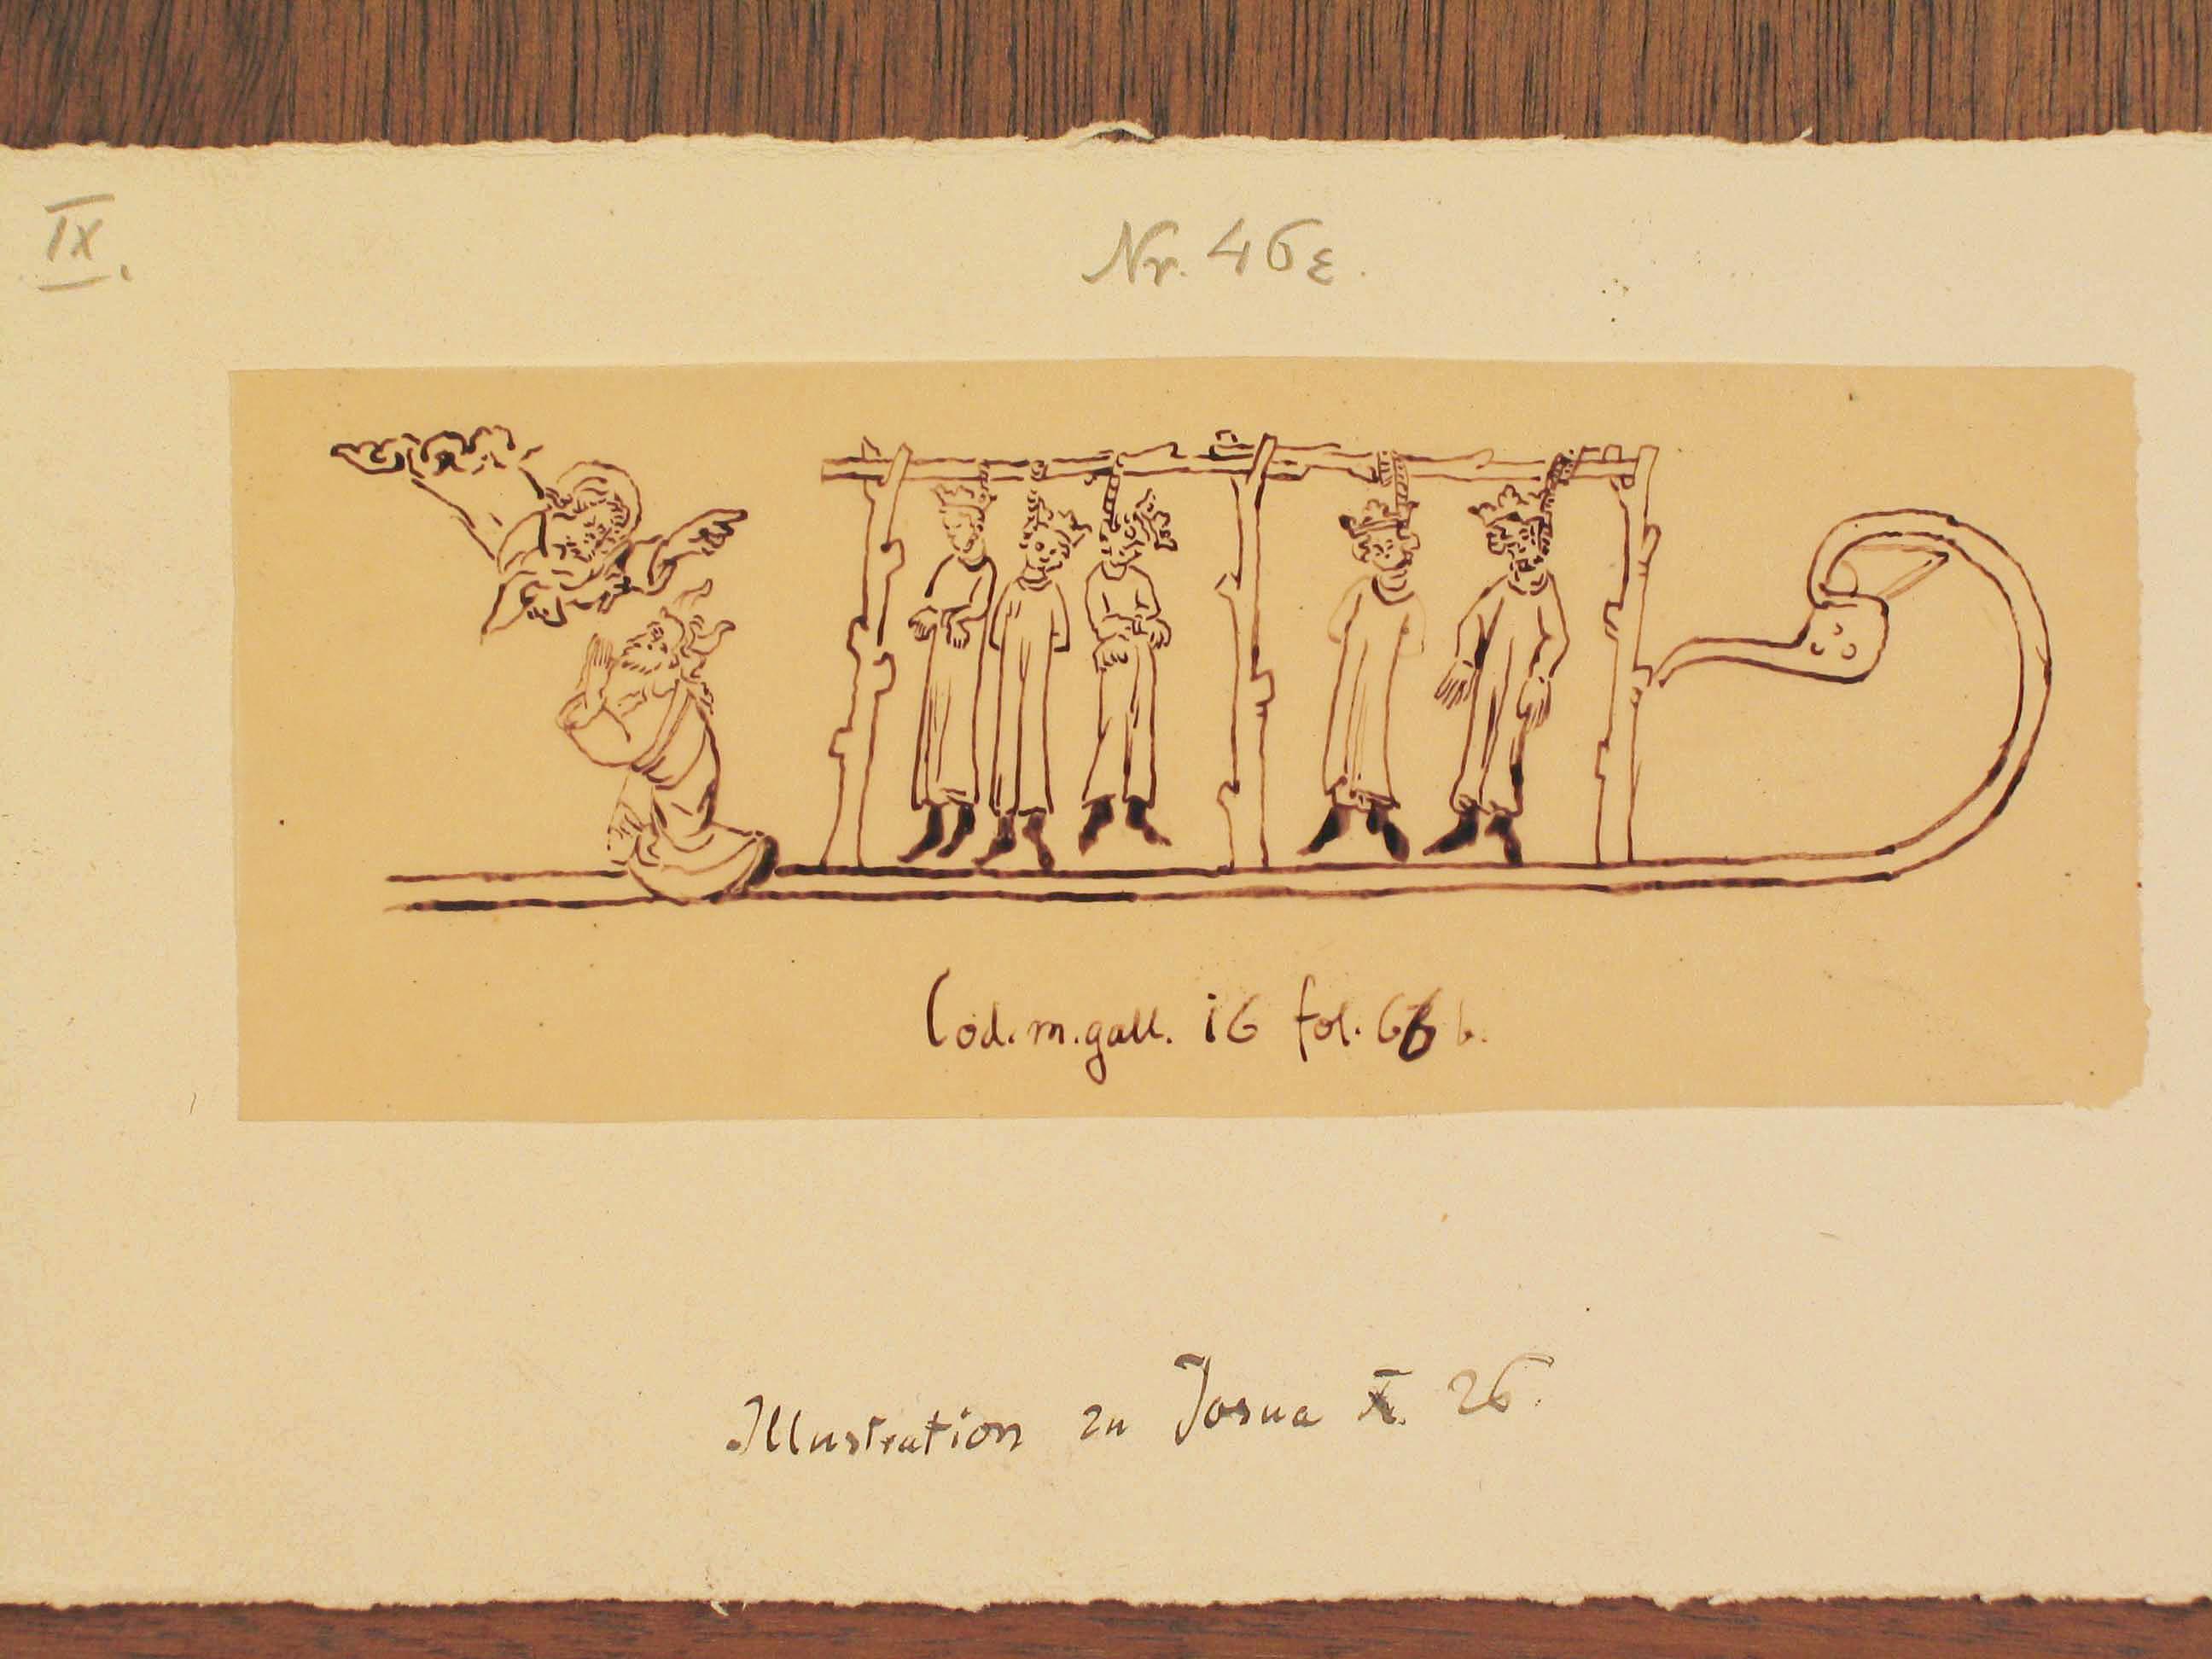 IX.
Nr. 46ε.
Cod. m. gall. i6 fol. 66 b.
Illustration zu Josua X. 26.